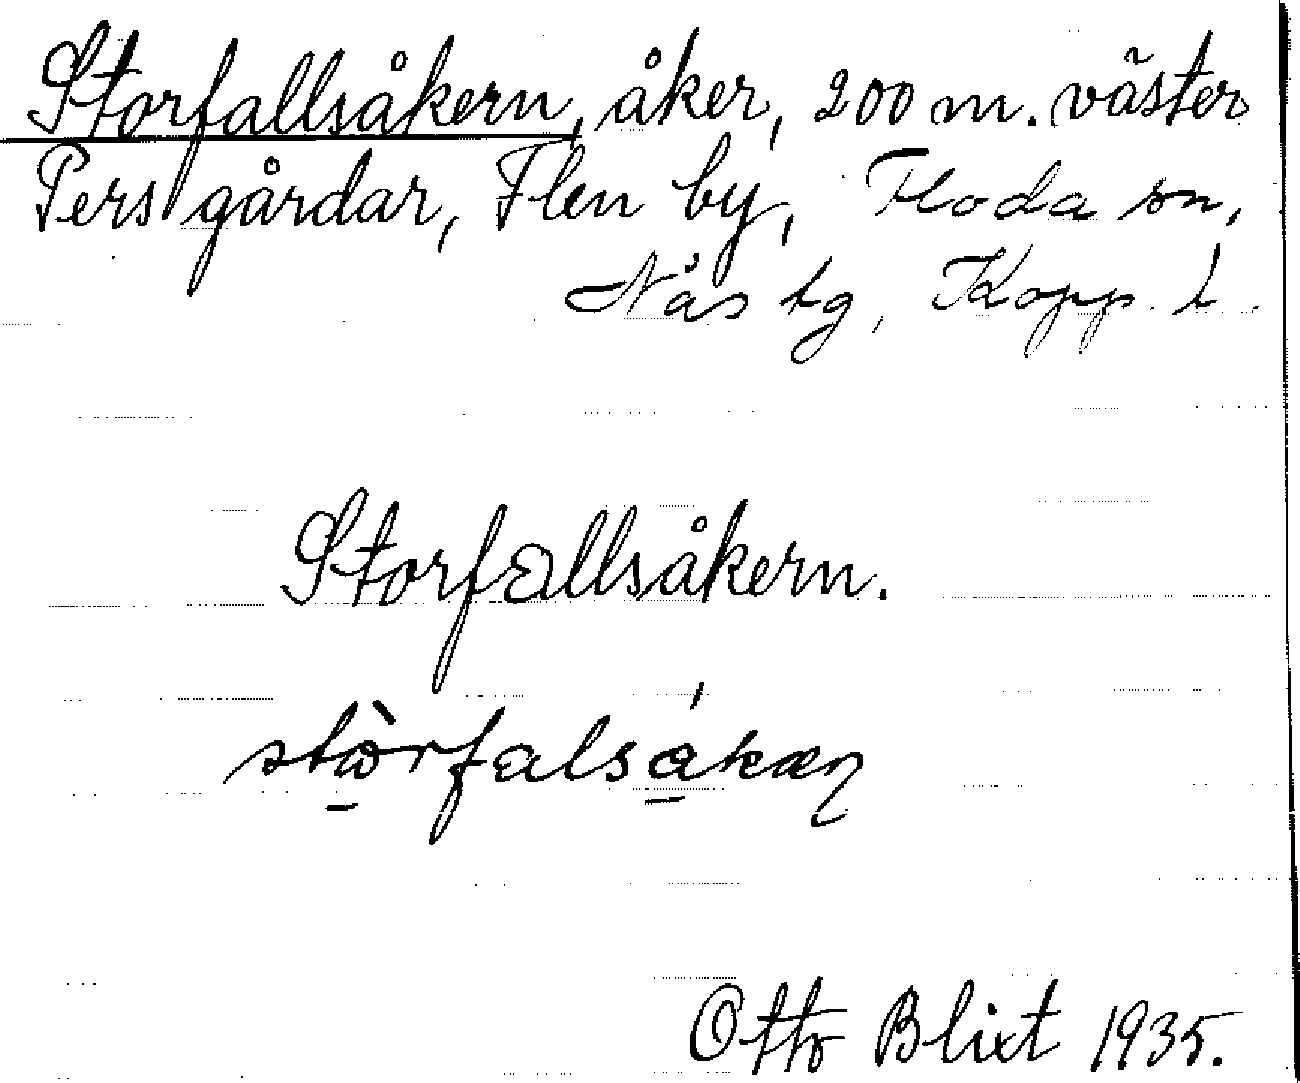 Storfallsåkern, åker, 200 m. väster
Pers gårdar, Flen by, Floda sn,
Nås tg, Kopp. l.
Storfallsåkern.
Otto Blixt 1935.